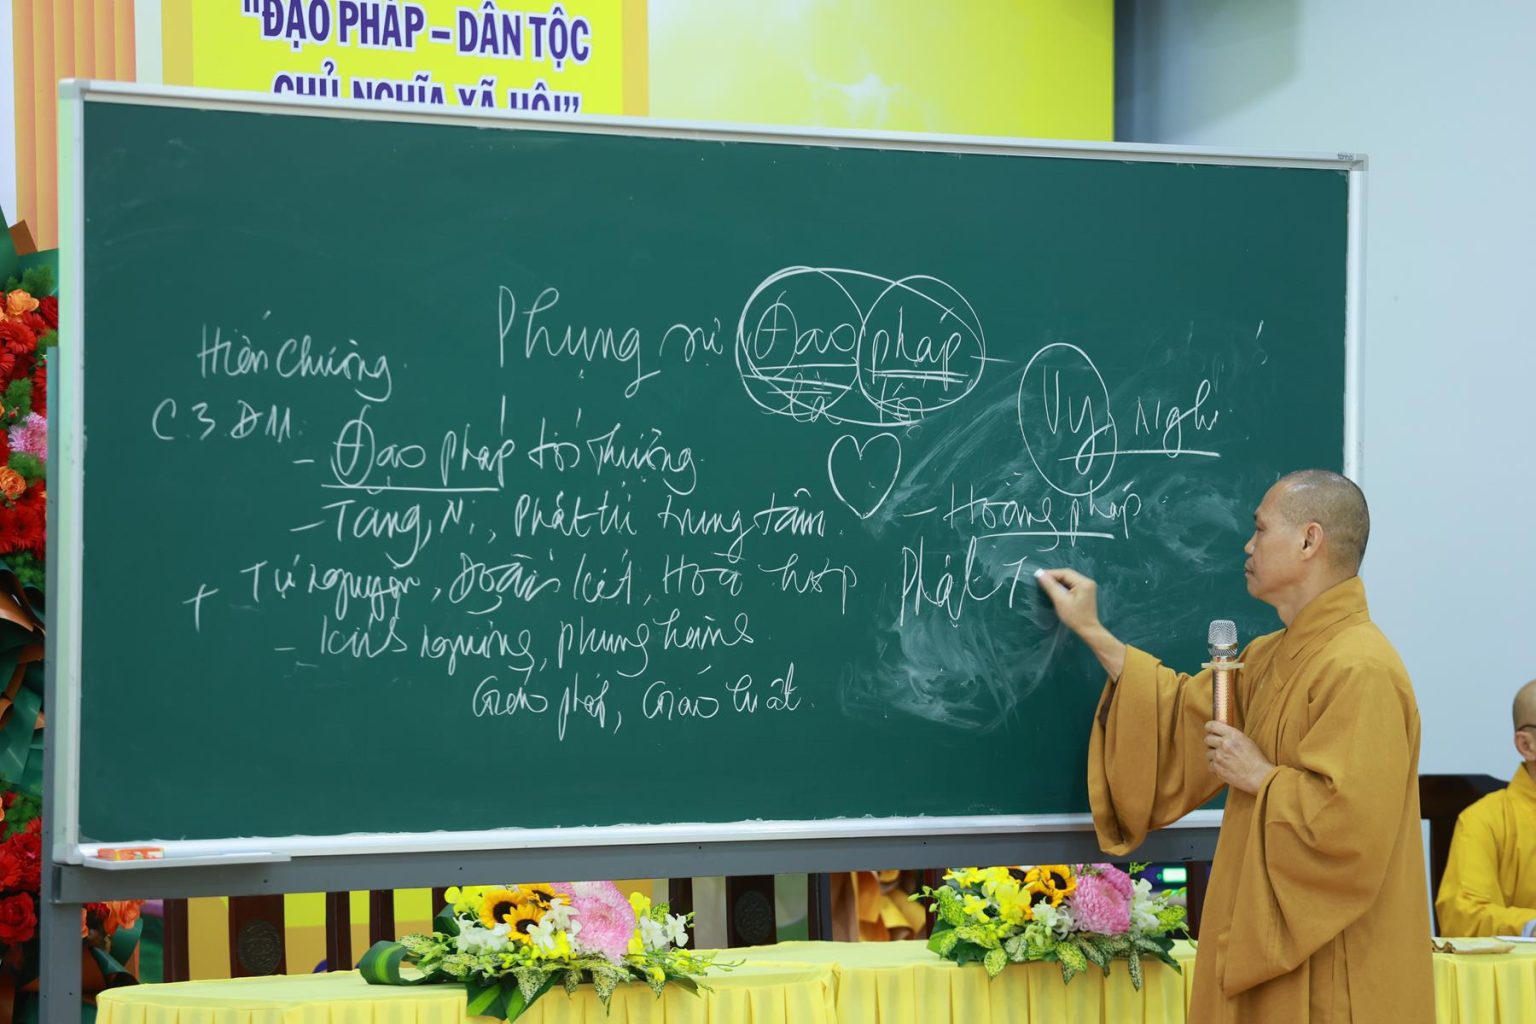 "ĐẠO PHÁP – DÂN TỘC
CHỦ NGHĨA XÃ HỘI"
Hiến Chương
Phụng sự Đạo pháp
là tối
C.3.Đ11.
Vy Nghi
- Đạo pháp tối thượng
- Tăng, Ni, Phật tử trung tâm
- Hoằng pháp
+ Tự nguyện, Đoàn kết, Hòa hợp
Phật T
- kỷ cương, phụng hành
Giáo pháp, Giáo luật.